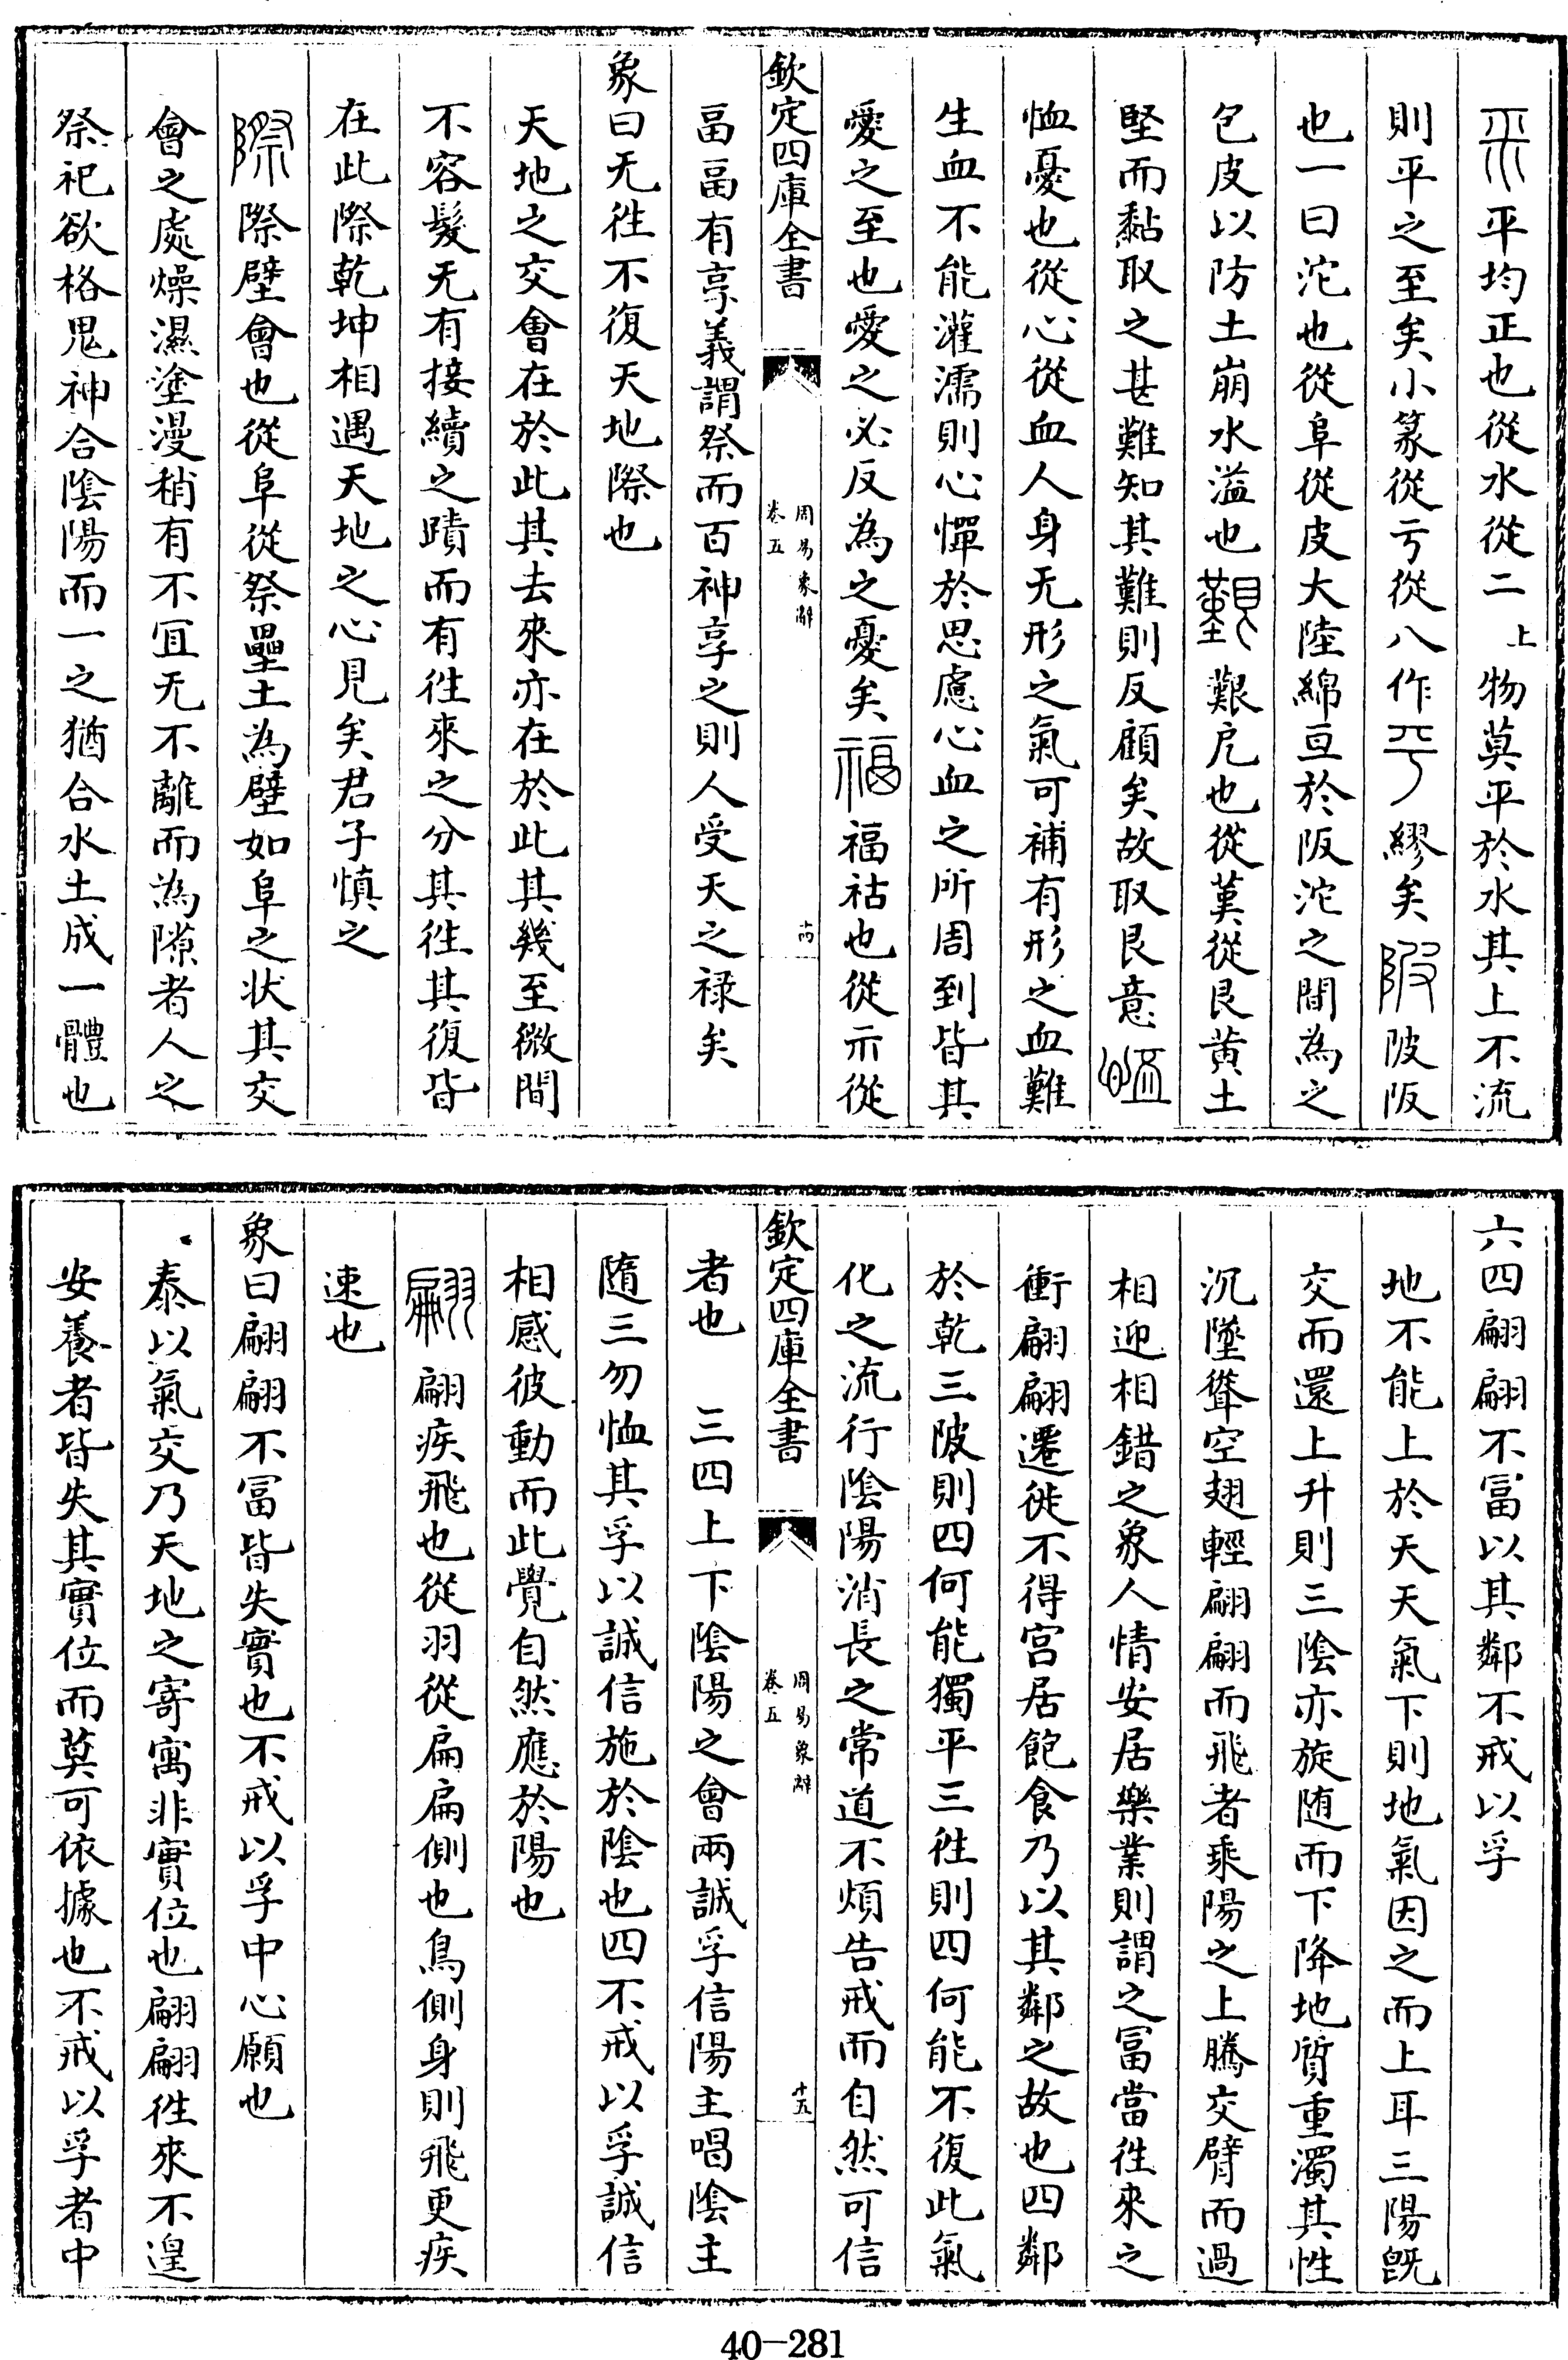 平平均正也從水從二上物莫平於水其上不流
則平之至矣小篆從亏從八作平繆矣陂陂阪
也一曰沱也從阜從皮大陸綿亘於阪沱之間為之
包皮以防土崩水溢也艱艱戹也從堇從艮黄土
堅而黏取之甚難知其難則反顧矣故取艮意恤
恤憂也從心從血人身无形之氣可補有形之血難
生血不能灌濡則心憚於思慮心血之所周到皆其
愛之至也愛之必反為之憂矣福福祜也從示從
欽定四庫全書
周易象辭
卷五
十四
畐畐有享義謂祭而百神享之則人受天之禄矣
象曰无徃不復天地際也
天地之交會在於此其去來亦在於此其幾至微間
不容髮无有接續之蹟而有徃來之分其徃其復皆
在此際乾坤相遇天地之心見矣君子慎之
際際壁會也從阜從祭壘土為壁如阜之状其交
會之處燥濕塗漫稍有不宜无不離而為隙者人之
祭祀欲格鬼神合陰陽而一之猶合水土成一體也
六四翩翩不冨以其鄰不戒以孚
地不能上於天天氣下則地氣因之而上耳三陽旣
交而還上升則三陰亦旋随而下降地質重濁其性
沉墜聳空翅輕翩翩而飛者乘陽之上騰交臂而過
相迎相錯之象人情安居樂業則謂之冨當徃來之
衝翩翩遷徙不得宫居飽食乃以其鄰之故也四鄰
於乾三陂則四何能獨平三徃則四何能不復此氣
化之流行陰陽消長之常道不煩告戒而自然可信
欽定四庫全書
周易象辭
卷五
十五
者也 三四上下陰陽之會兩誠孚信陽主唱陰主
隨三勿恤其孚以誠信施於陰也四不戒以孚誠信
相感彼動而此覺自然應於陽也
翩翩疾飛也從羽從扁扁側也鳥側身則飛更疾
速也
象曰翩翩不冨皆失實也不戒以孚中心願也
泰以氣交乃天地之寄寓非實位也翩翩徃來不遑
安養者皆失其實位而莫可依據也不戒以孚者中
40-281